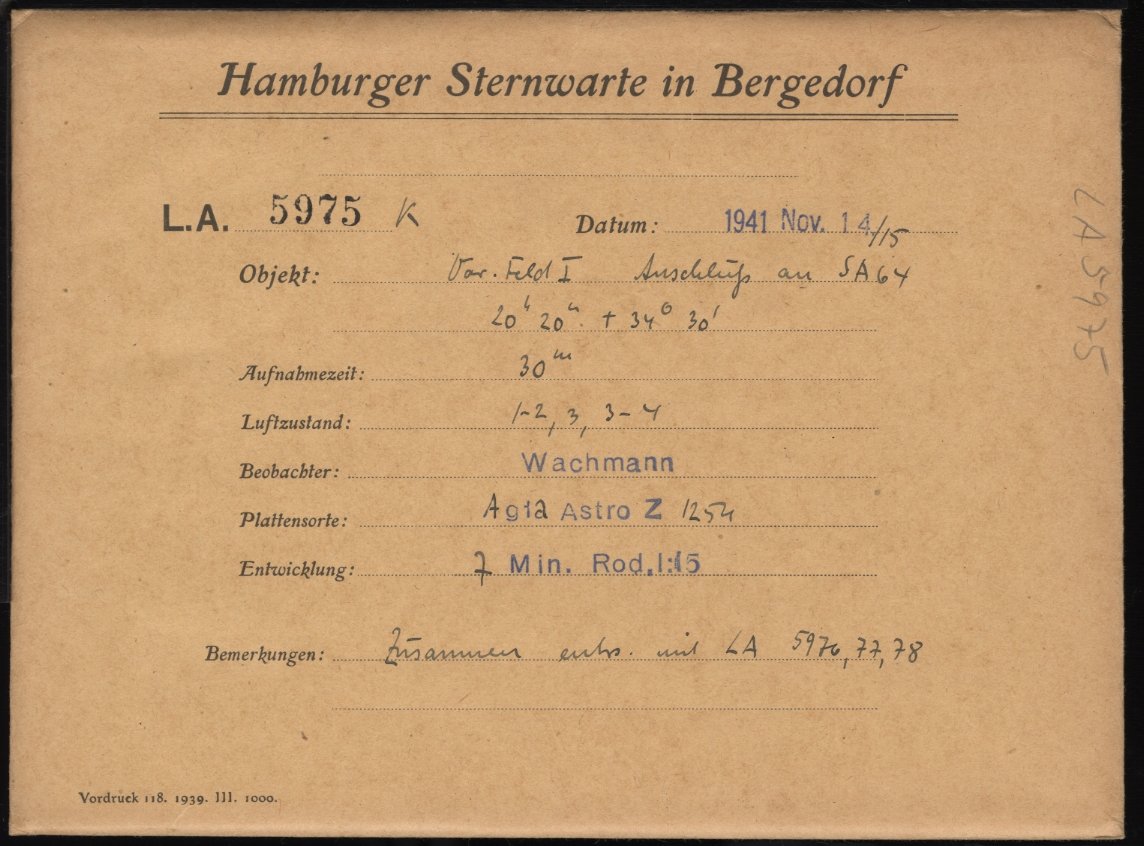 Hamburger Sternwarte in Bergedorf
L.A. 5975 K Datum: 1941 Nov. 14/15
Objekt: Var. Feld I Anschluß an SA 64
20h 20m + 34° 30'
Aufnahmezeit: 30m
Luftzustand: 1-2, 3, 3-4
Beobachter: Wachmann
Plattensorte: Agfa Astro Z 1254
Entwicklung: 7 Min. Rod. 1:15
Bemerkungen: Zusammen entw. mit LA 5976, 77, 78
Vordruck 118. 1939. III. 1000.
LA 5975